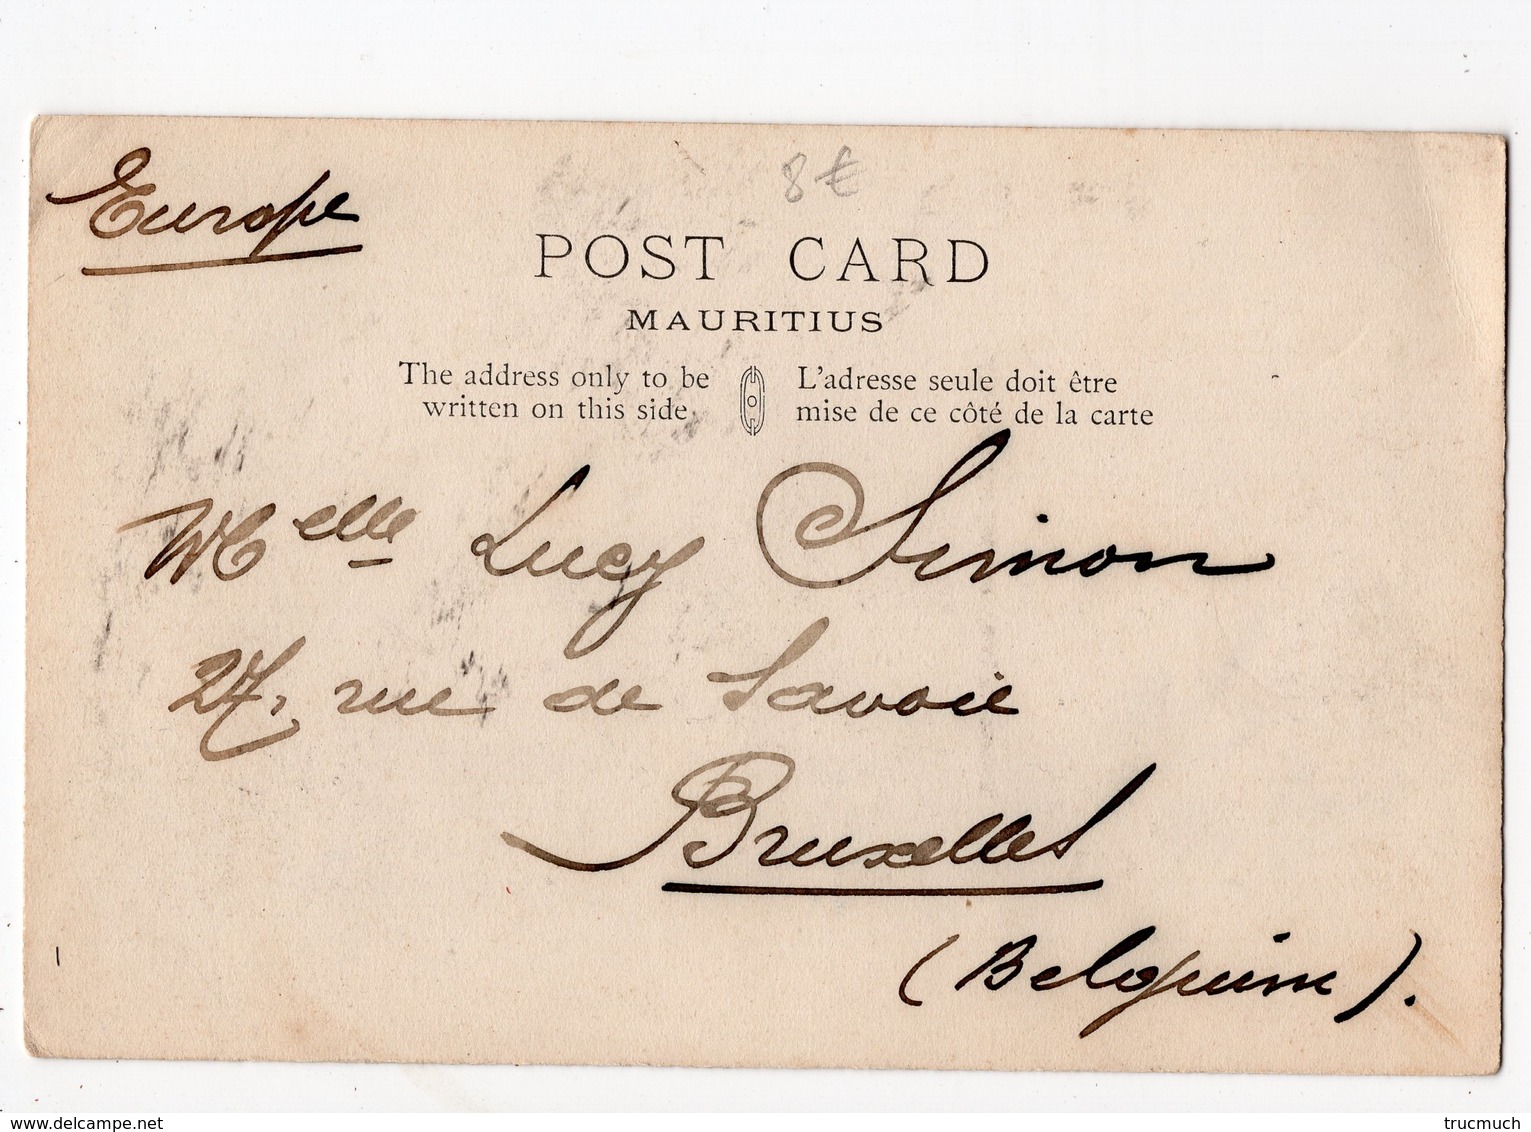 Europe
8€
POST CARD
MAURITIUS
The address only to be
written on this side
L'adresse seule doit être
mise de ce côté de la carte
Melle Lucy Simon
27, rue de Savoie
Bruxelles
(Belgium).
www.delcampe.net
trucmuch